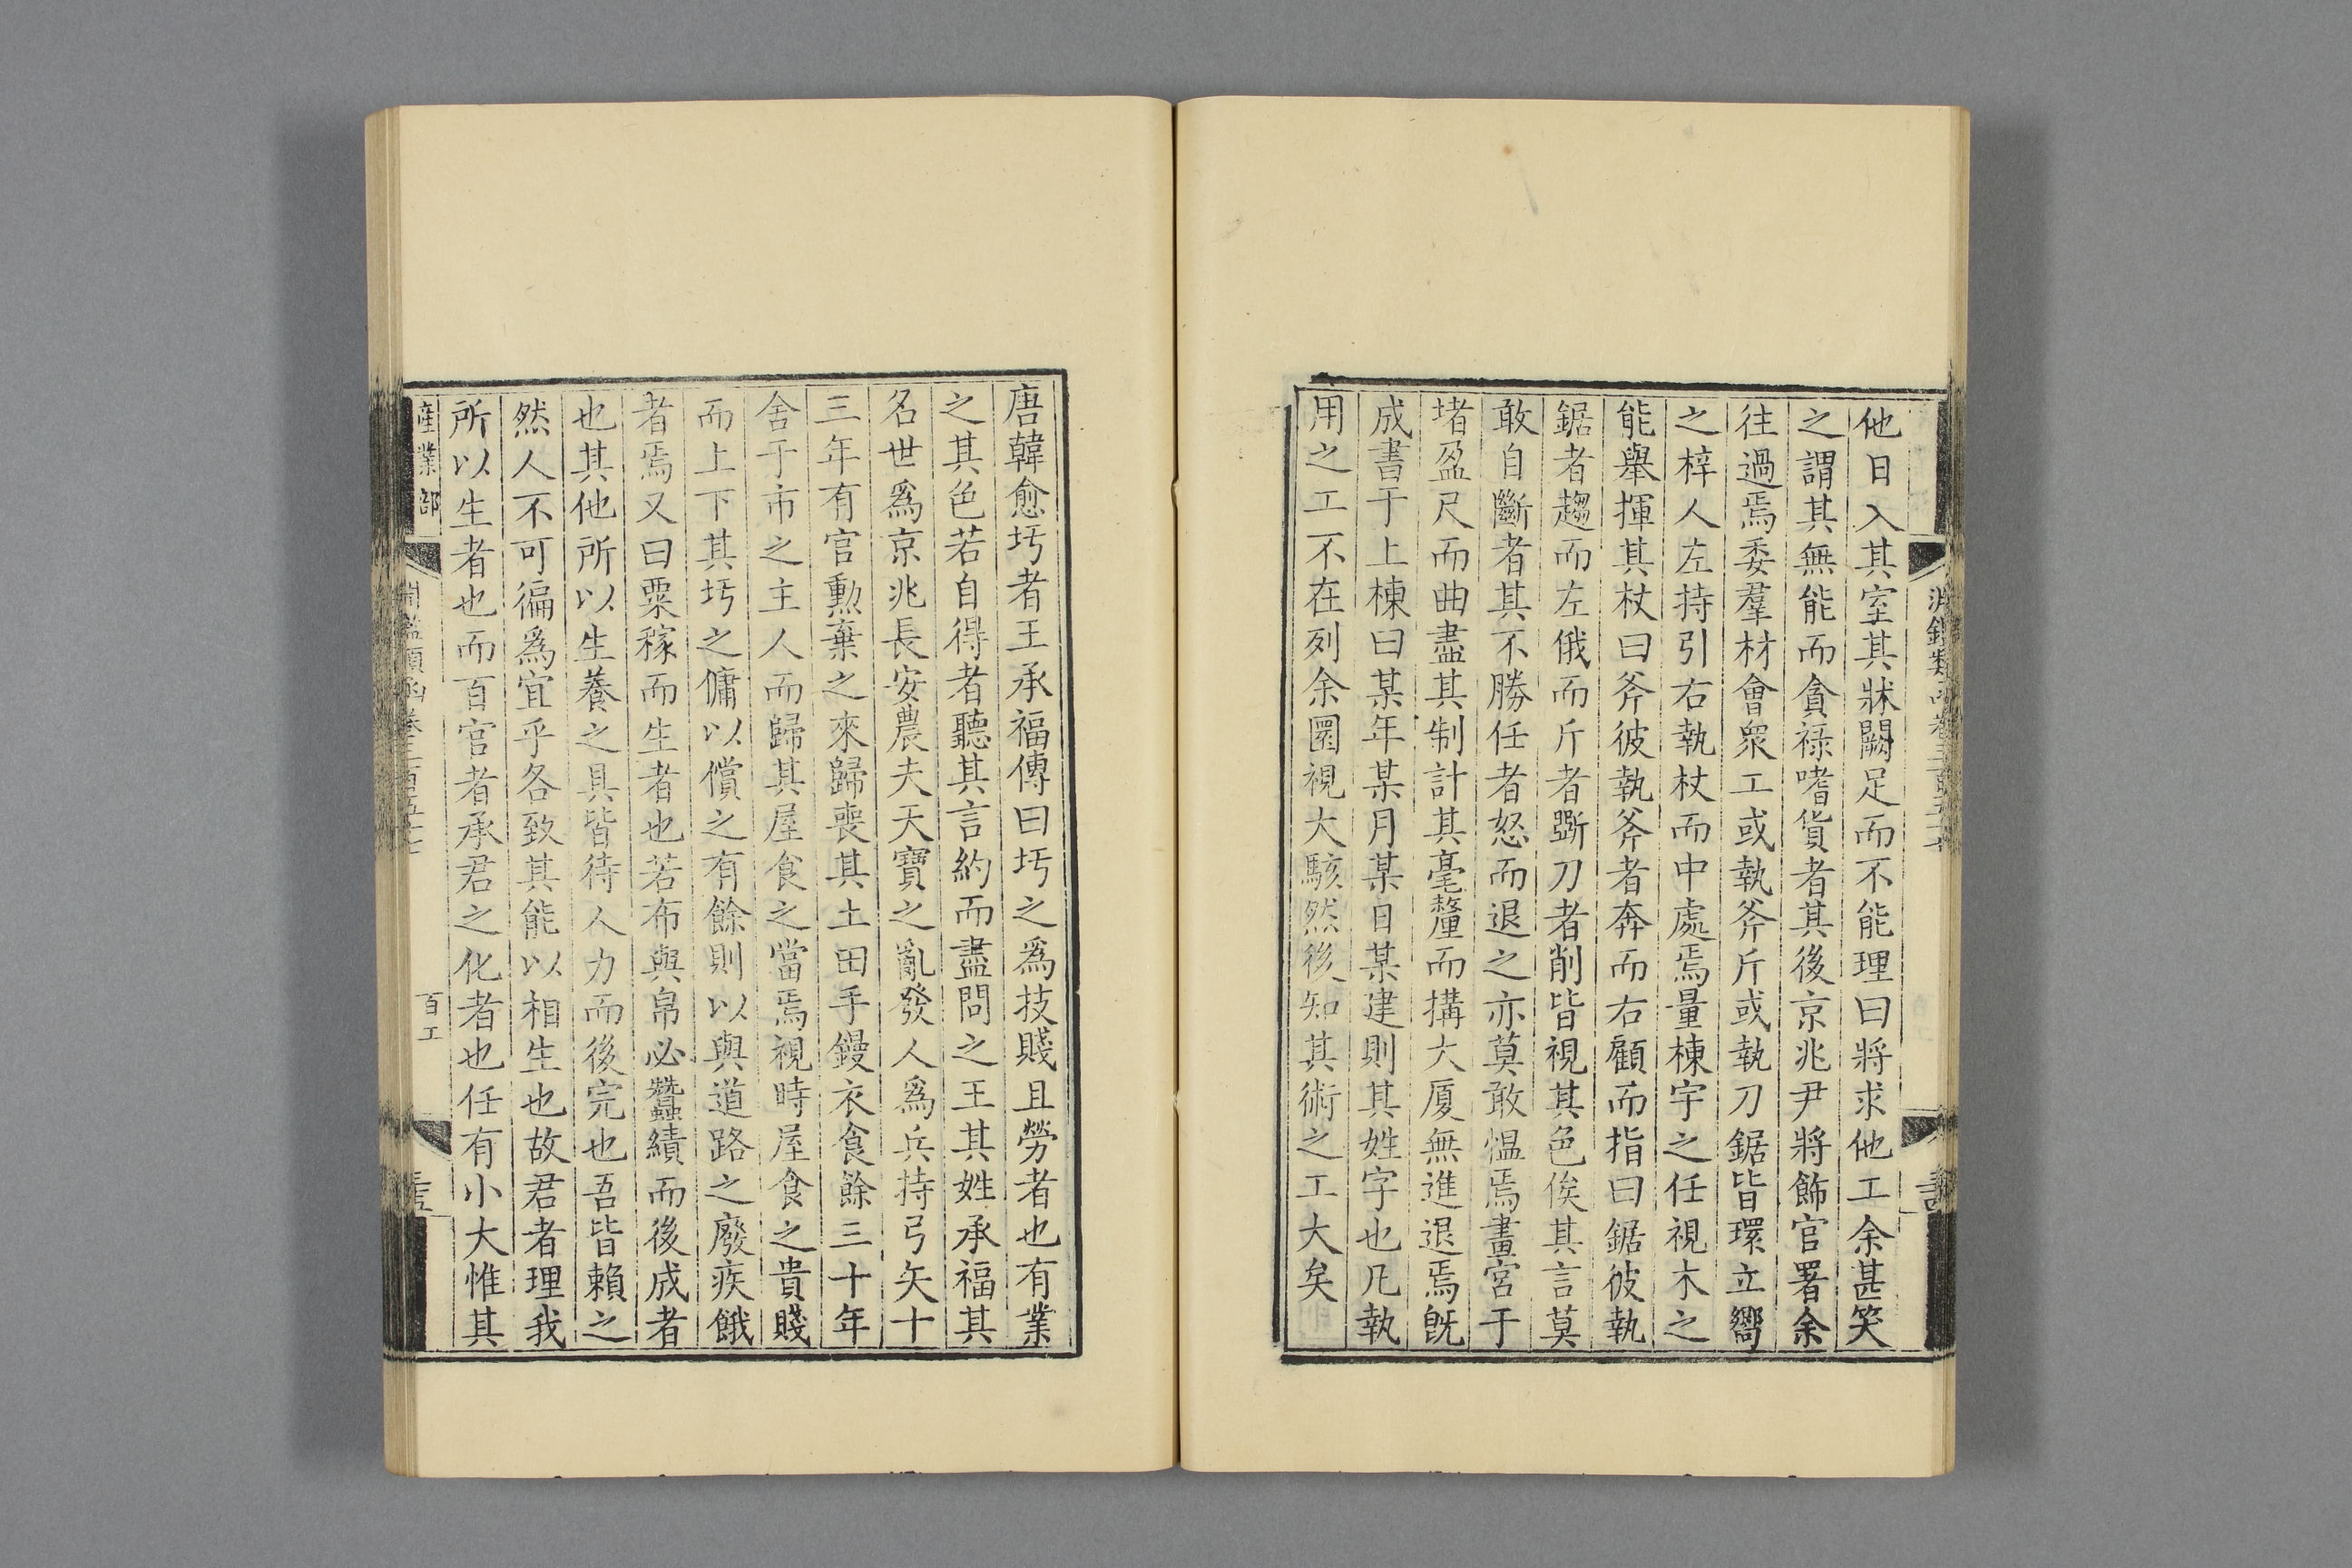 他日入其室其牀闕足而不能理曰將求他工余甚笑
之謂其無能而貪祿嗜貨者其後京兆尹將飾官署余
往過焉委羣材會衆工或執斧斤或執刀鋸皆環立嚮
之梓人左持引右執杖而中處焉量棟宇之任視木之
能舉揮其杖曰斧彼執斧者奔而右顧而指曰鋸彼執
鋸者趨而左俄而斤者斲刀者削皆視其色俟其言莫
敢自斷者其不勝任者怒而退之亦莫敢愠焉畫宮于
堵盈尺而曲盡其制計其毫釐而搆大厦無進退焉旣
成書于上棟曰某年某月某日某建則其姓字也凡執
用之工不在列余圜視大駭然後知其術之工大矣
唐韓愈圬者王承福傳曰圬之爲技賤且勞者也有業
之其色若自得者聽其言約而盡問之王其姓承福其
名世爲京兆長安農夫天寶之亂發人爲兵持弓矢十
三年有官勲棄之來歸喪其土田手鏝衣食餘三十年
舍于市之主人而歸其屋食之當焉視時屋食之貴賤
而上下其圬之傭以償之有餘則以與道路之廢疾餓
者焉又曰粟稼而生者也若布與帛必蠶績而後成者
也其他所以生養之具皆待人力而後完也吾皆賴之
然人不可徧爲宜乎各致其能以相生也故君者理我
所以生者也而百官者承君之化者也任有小大惟其
產業部
百工